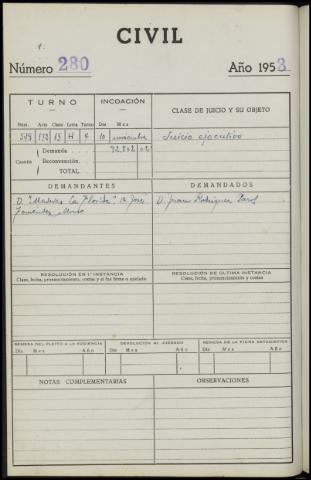 CIVIL
Número 280 Año 1953
TURNO INCOACIÓN CLASE DE JUICIO Y SU OBJETO
Núm. Acta Clase Letra Turno Día Mes
13 H 4 10 noviembre Juicio ejecutivo
Cuantía Demanda 92.802 02
Reconvención.
TOTAL
DEMANDANTES DEMANDADOS
D. "Maderas La Florida", D. José D. Juan Rodríguez
Fernández
RESOLUCIÓN EN 1.ª INSTANCIA RESOLUCIÓN DE ÚLTIMA INSTANCIA
Clase, fecha, pronunciamiento, costas y si fué firme o apelada Clase, fecha, pronunciamiento y costas
REMESA DEL PLEITO A LA AUDIENCIA DEVOLUCIÓN AL JUZGADO REMESA DE LA FICHA ESTADÍSTICA
Día Mes Año Día Mes Año Día Mes Año
NOTAS COMPLEMENTARIAS OBSERVACIONES